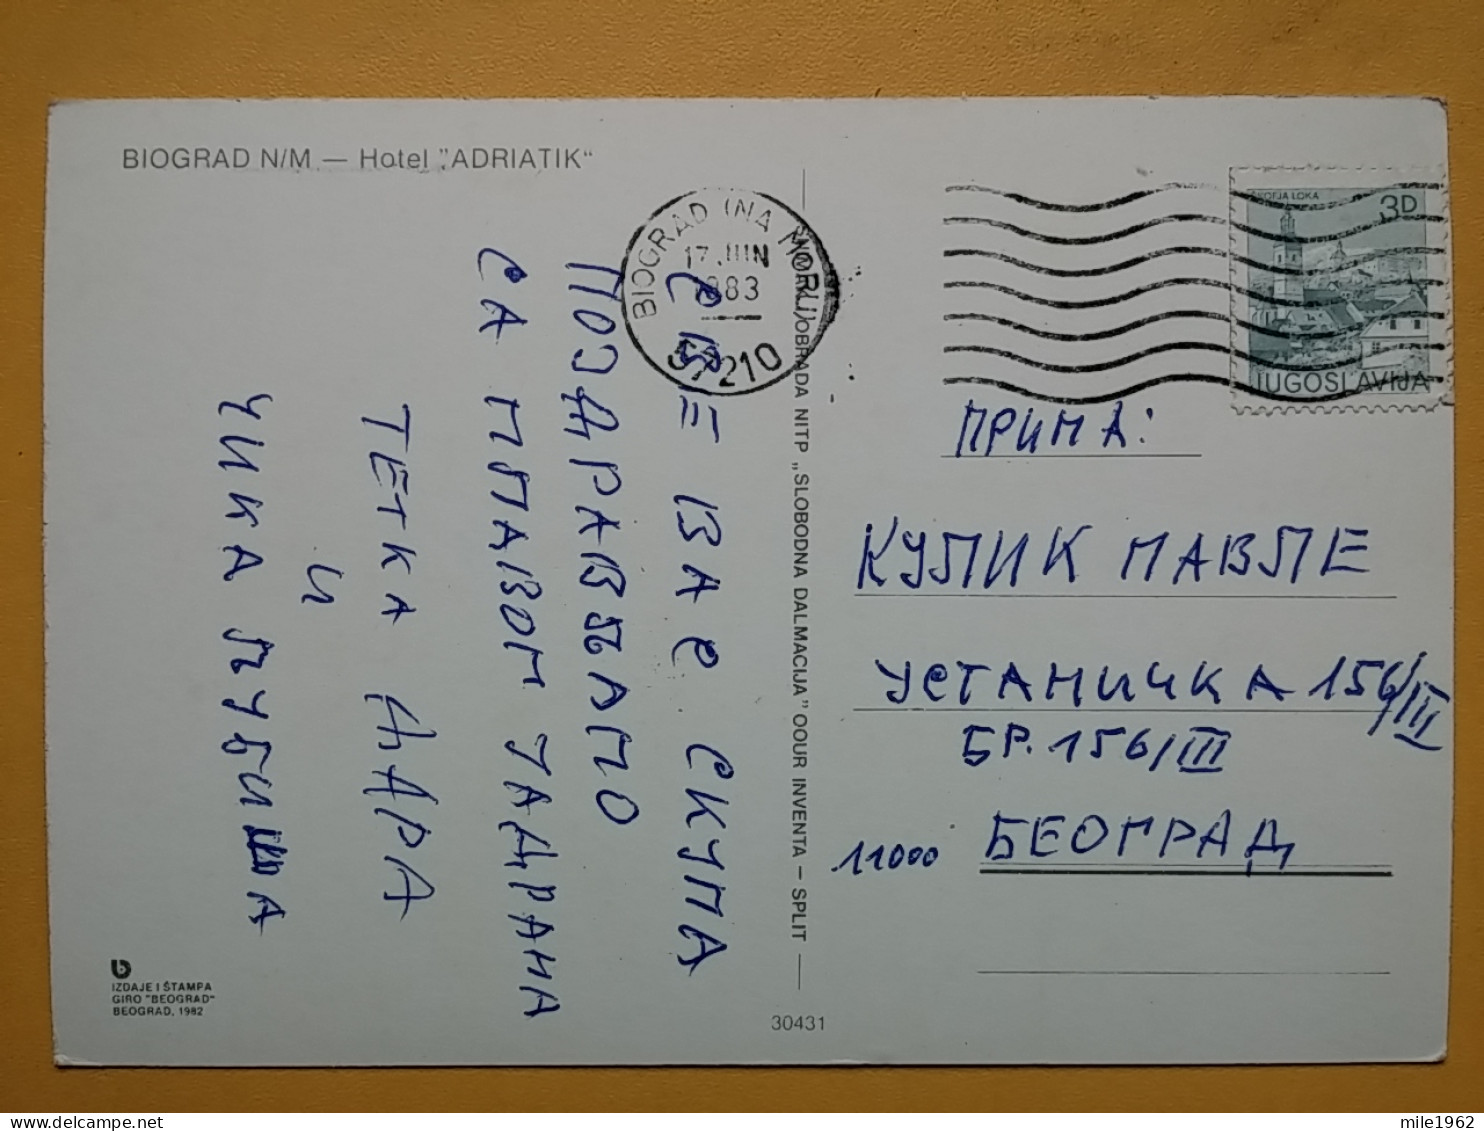 BIOGRAD N/M — Hotel "ADRIATIK"
BIOGRAD (NA MORU)
17 JUN
1983
57210
ŠKOFJA LOKA
3D
JUGOSLAVIJA
СВЕ ВАС СКУПА
ПОЗДРАВЉАМО
СА ПЛАВОГ ЈАДРАНА
ТЕТКА ДАРА
И
ЧИКА ЉУБИША
OBRADA NITP „SLOBODNA DALMACIJA" OOUR INVENTA – SPLIT
ПРИМА:
КУЛИК ПАВЛЕ
УСТАНИЧКА 156/III
БР. 156/III
11000 БЕОГРАД
IZDAJE I ŠTAMPA
GIRO "BEOGRAD"
BEOGRAD, 1982
30431
mile1962